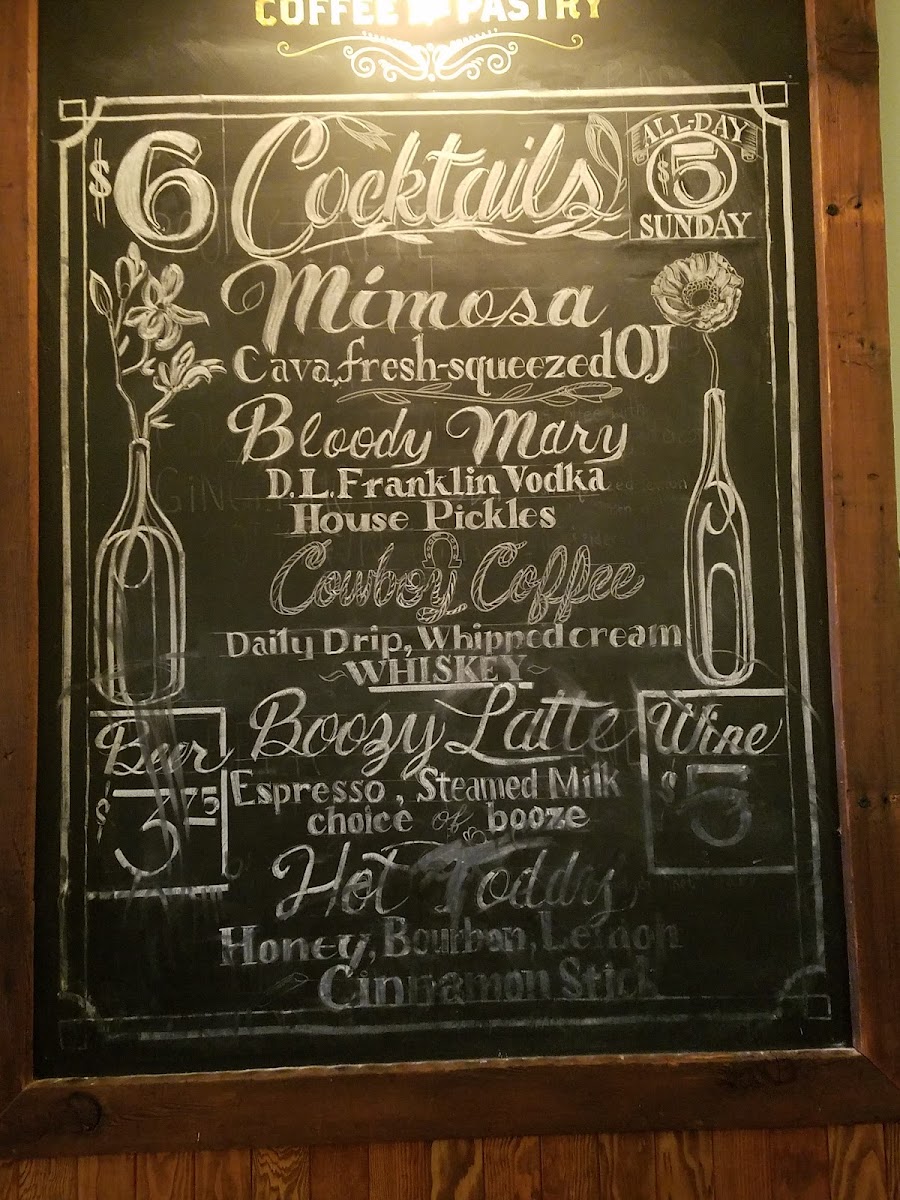 COFFEE PASTRY
$6 Cocktails
ALL-DAY
$5
SUNDAY
Mimosa
Cava, fresh-squeezed OJ
Bloody Mary
D.L. Franklin Vodka
House Pickles
Cowboy Coffee
Daily Drip, Whipped cream
~WHISKEY~
Boozy Latte
Espresso, Steamed Milk
choice of booze
Beer
$3.75
Wine
$5
Hot Toddy
Honey, Bourbon, Lemon
Cinnamon Stick